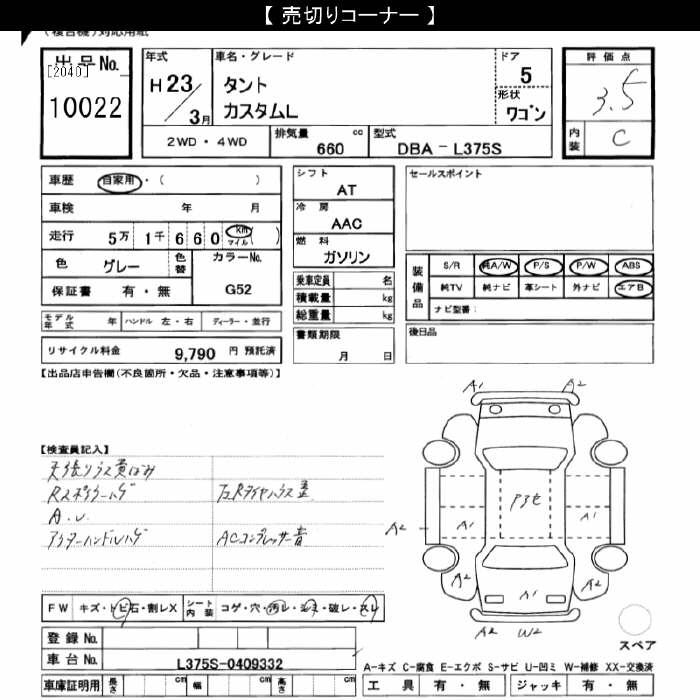 【 売切りコーナー 】
(複合機)対応用紙
出品No.
[2040]
10022
年式
H23/3月
車名・グレード
タント
カスタムL
ドア
5
形状
ワゴン
評価点
3.5
内装
C
2WD ・ 4WD
排気量 cc
660
型式
DBA － L375S
車歴 自家用 ・ ( )
車検 年 月
走行 5万 1千 6 6 0 km マイル ( )
色 グレー
色替
カラーNo.
G52
保証書 有 ・ 無
モデル年式 年 ハンドル 左 ・ 右 ディーラー ・ 並行
リサイクル料金 9,790 円 預託済
シフト
AT
冷房
AAC
燃料
ガソリン
乗車定員 名
積載量 kg
総重量 kg
書類期限
月 日
セールスポイント
装備品
S/R 純A/W P/S P/W ABS
純TV 純ナビ 革シート 外ナビ エアB
ナビ型番：
後日品
【出品店申告欄(不良箇所・欠品・注意事項等)】
【検査員記入】
天張りうス黄ばみ
Rスポイラーハゲ
A.U.
アウターハンドルハゲ
ACコンプレッサー音
A1 A2
A2 A1 A1
A2 A1 A2
A2 W2
FW キズ・トビ石・割レX シート内装 コゲ・穴・汚レ・シミ・破レ・スレ
登録 No.
車台 No. L375S-0409332
車庫証明用 長さ cm 幅 cm 高さ cm
スペア
A－キズ C－腐食 E－エクボ S－サビ U－凹ミ W－補修 XX－交換済
工具 有 ・ 無 ジャッキ 有 ・ 無